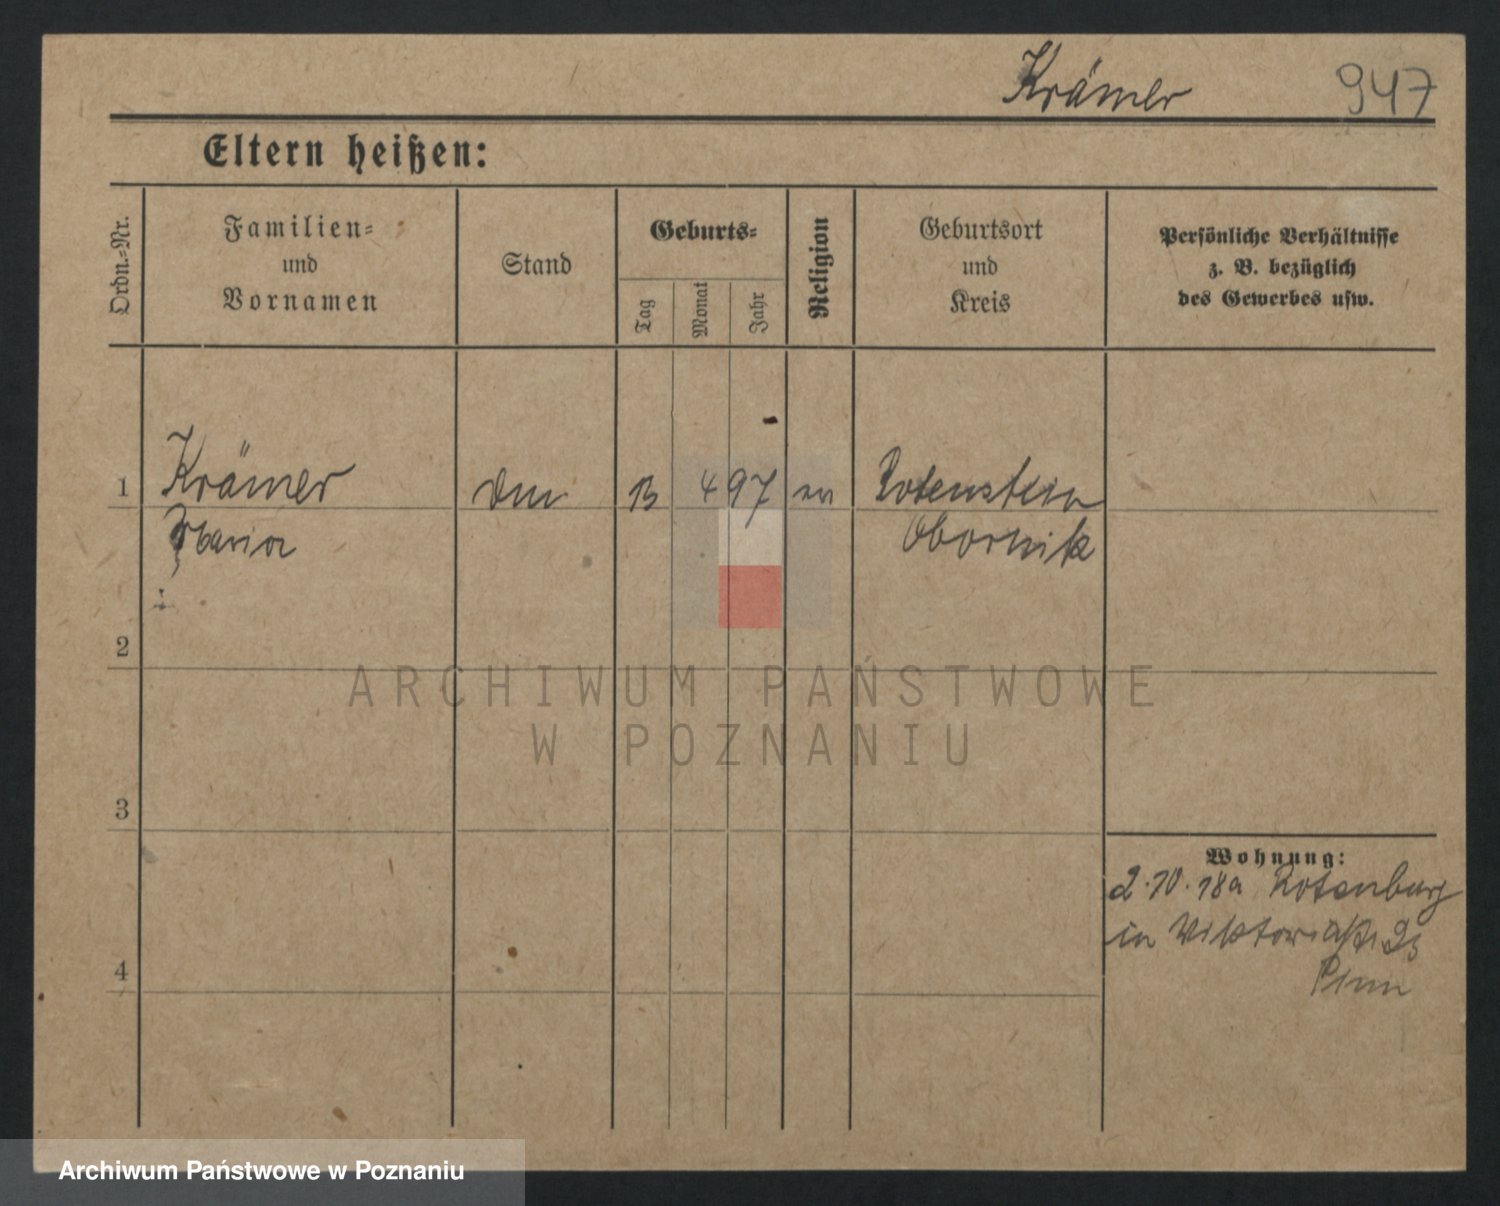 Krämer 947
Eltern heißen:
Ordn.-Nr.
Familien-
und
Vornamen
Stand
Geburts-
Tag
Monat
Jahr
Religion
Geburtsort
und
Kreis
Persönliche Verhältnisse
z. B. bezüglich
des Gewerbes usw.
1 Krämer 4 97 Rotenstein
Maria Obornik
2
3
4
Wohnung:
2.10.18 a Rotenburg
in Viktoriastr.
ARCHIWUM PAŃSTWOWE
W POZNANIU
Archiwum Państwowe w Poznaniu